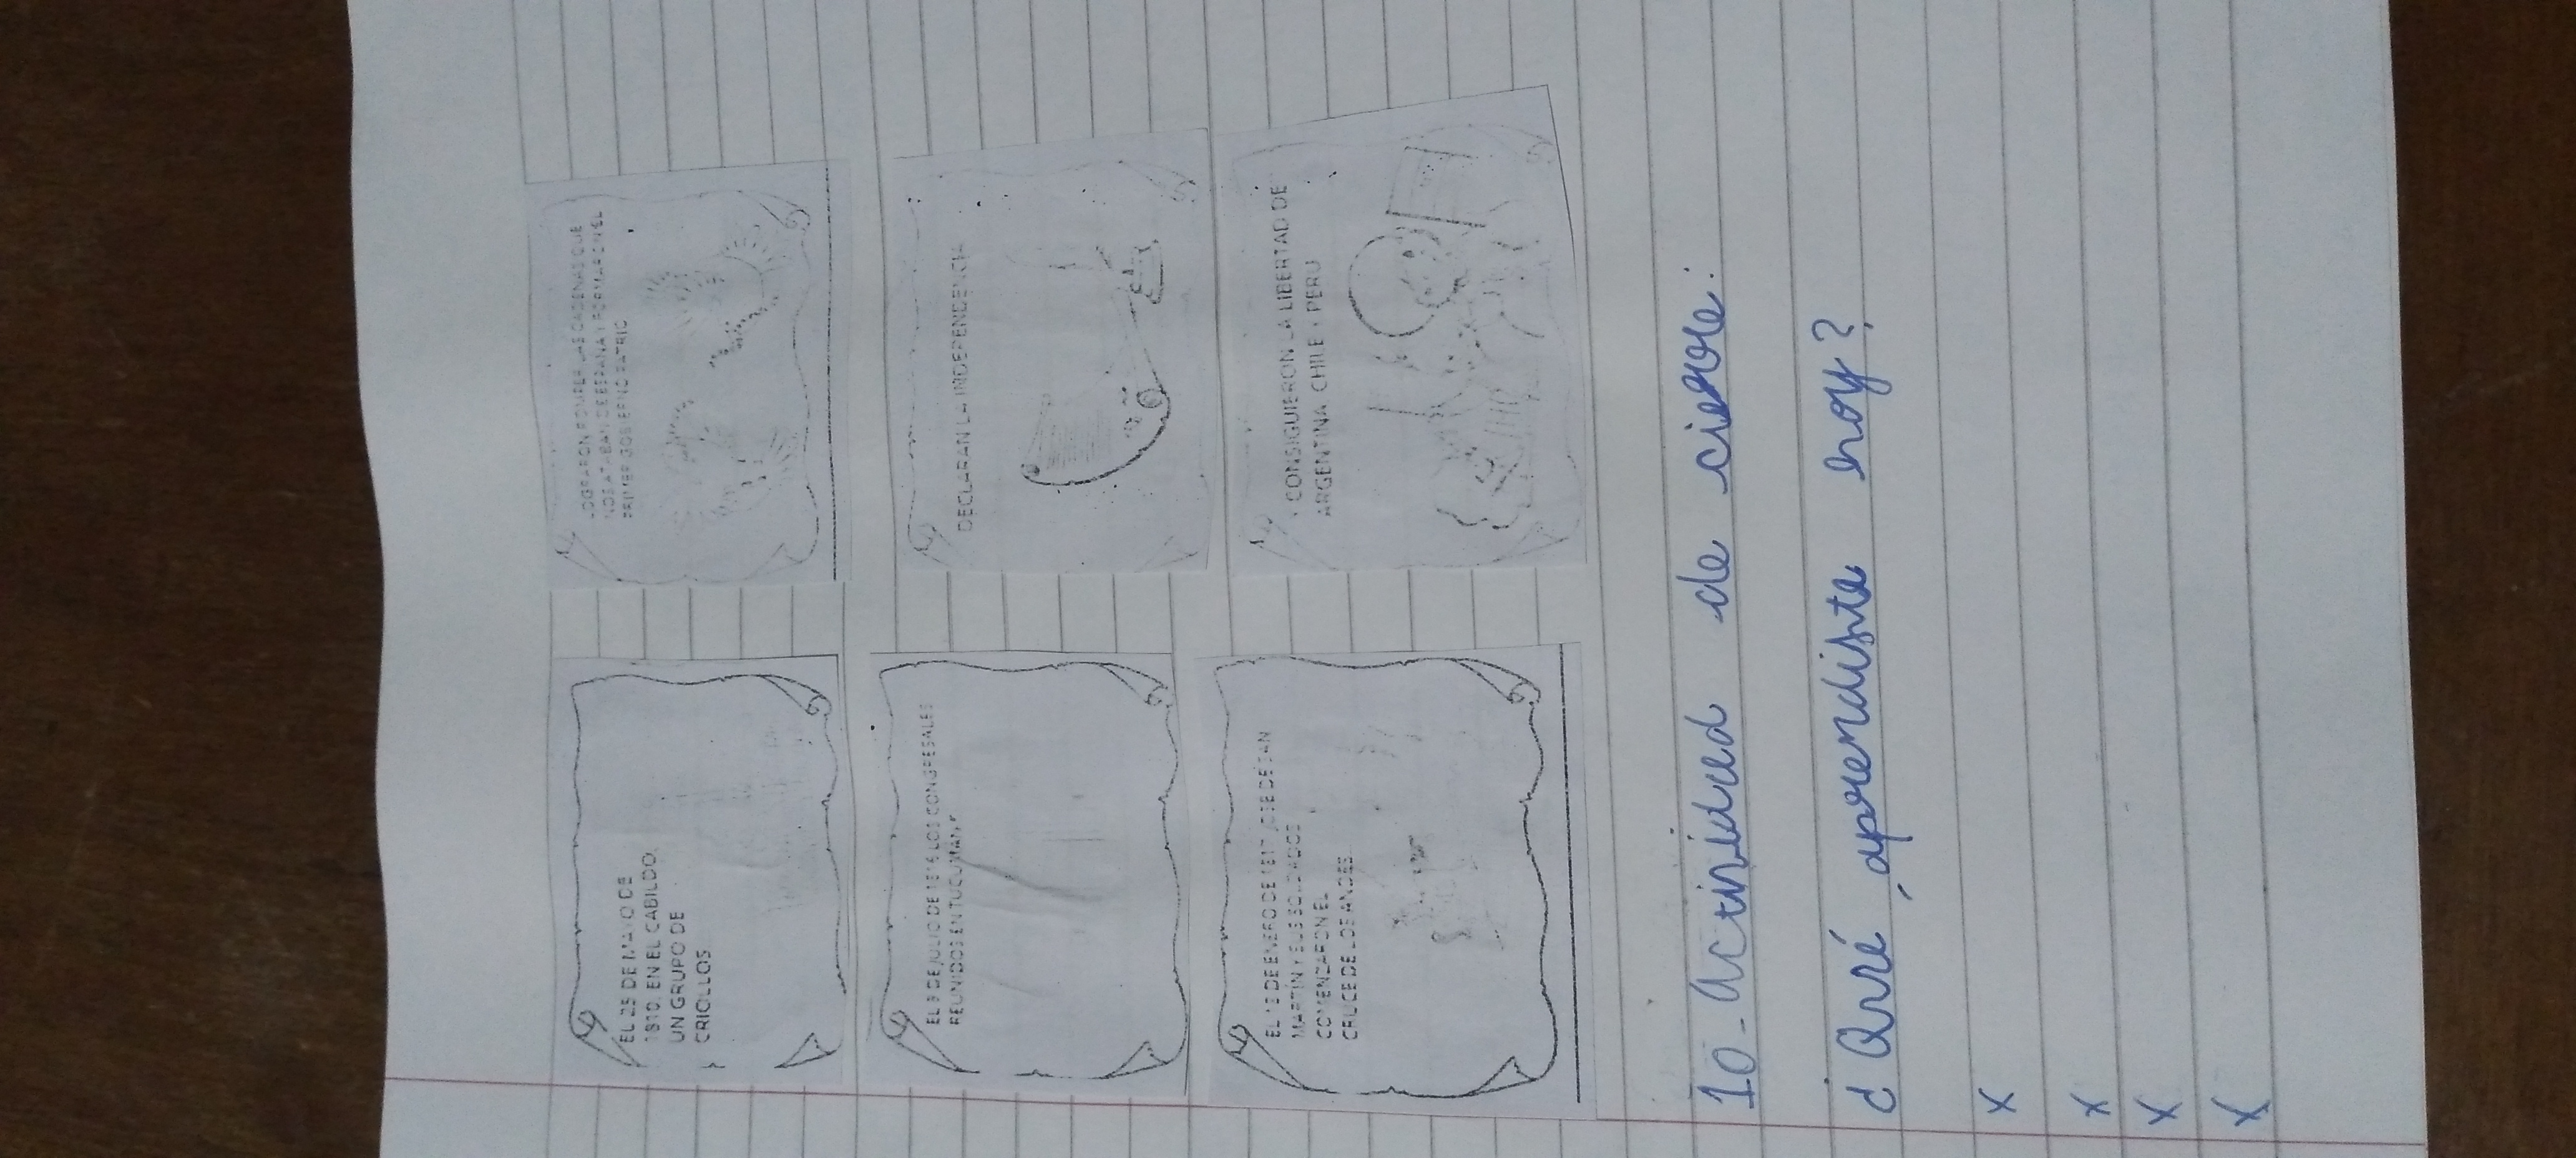 EL 25 DE MAYO DE
1810, EN EL CABILDO,
UN GRUPO DE
CRIOLLOS
LOGRARON ROMPER LAS CADENAS QUE
NOS ATABAN DE ESPAÑA Y FORMAR EL
PRIMER GOBIERNO PATRIO
EL 9 DE JULIO DE 1816 LOS CONGRESALES
REUNIDOS EN TUCUMAN
DECLARAN LA INDEPENDENCIA
DE ENERO DE 1817 JOSE DE SAN
MARTIN Y SUS SOLDADOS
COMENZARON EL
CRUCE DE LOS ANDES
Y CONSIGUIERON LA LIBERTAD DE
ARGENTINA CHILE Y PERU
10-Actividad de cierre:
¿Qué aprendiste hoy?
x
x
x
x